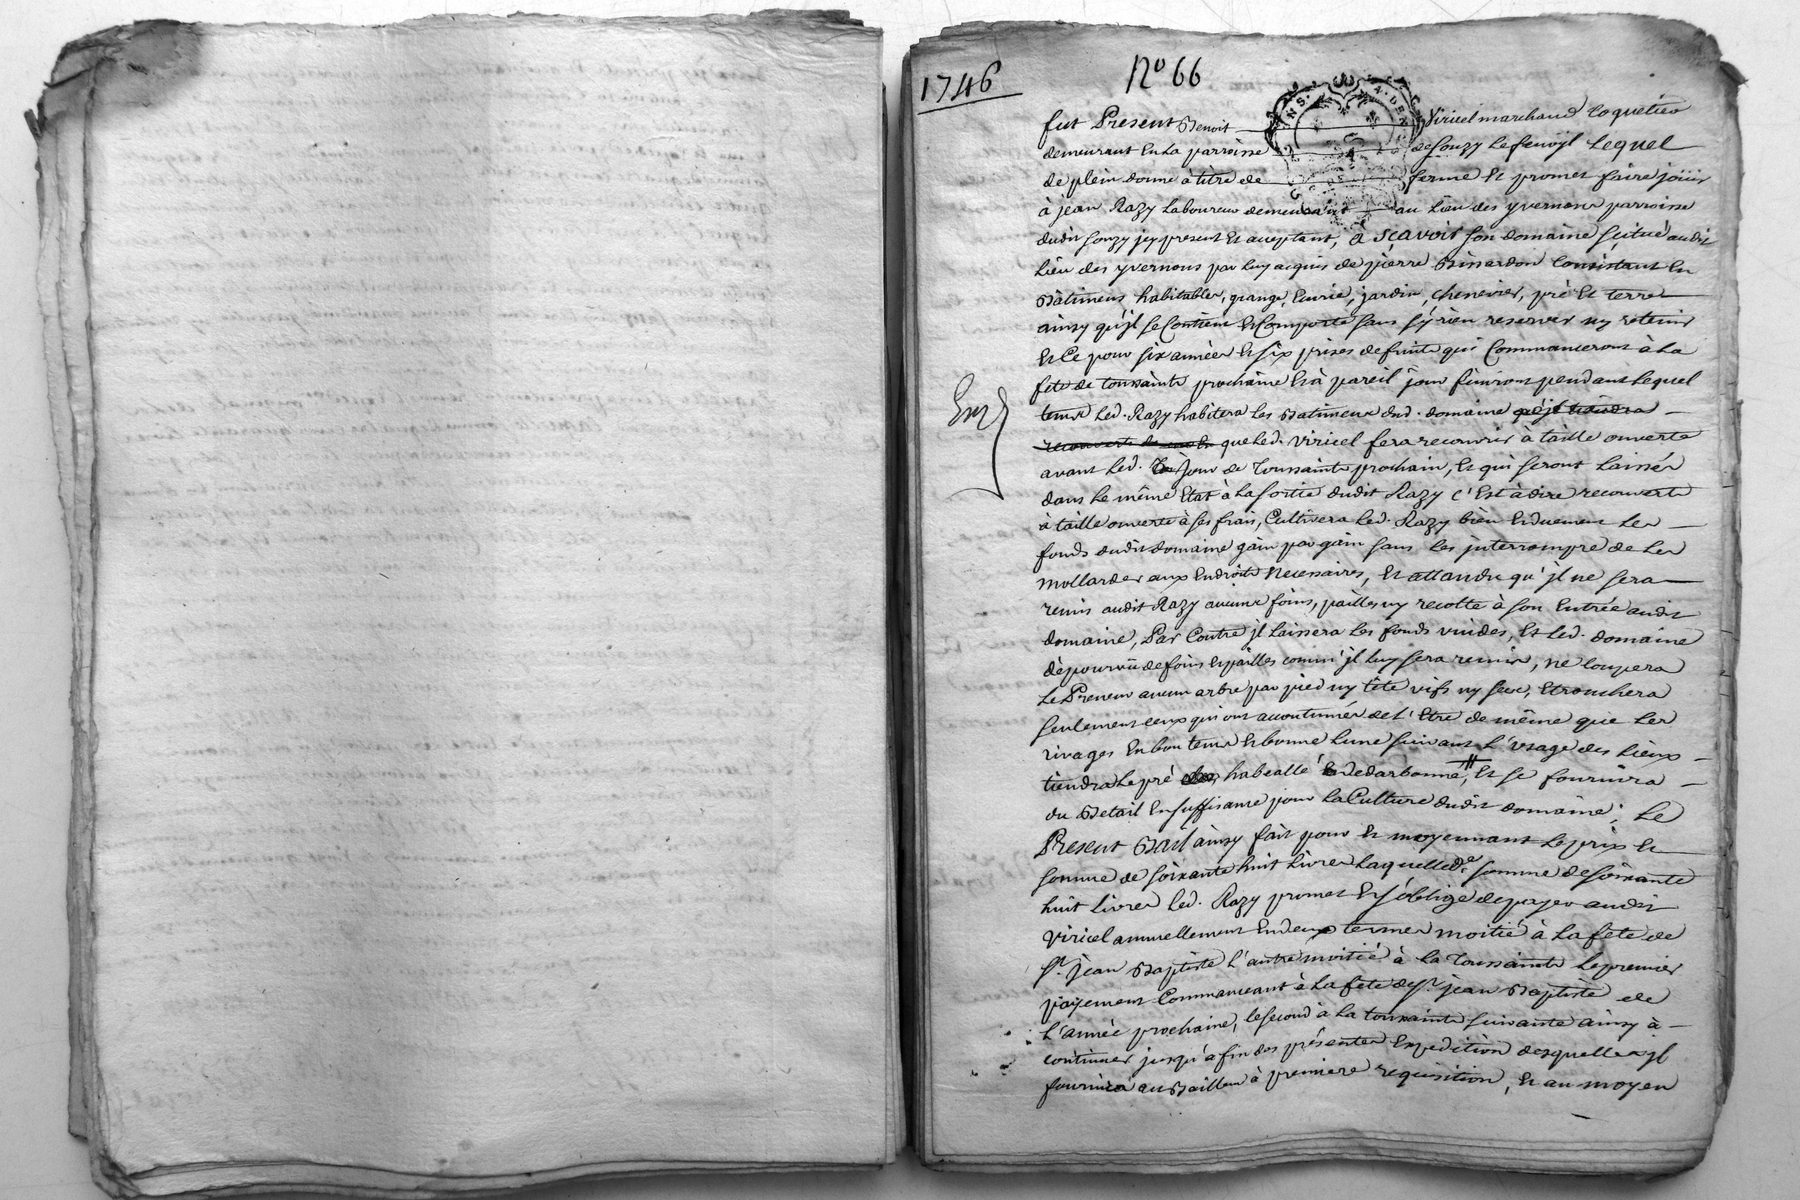 1746
No 66
fut Present Benoit Viricel marchand Coquetier
demeurant En La parroisse de Souzy Le fenoÿl Lequel
de plein donne à titre de ferme Et promet faire joüir
à jean Razy Laboureur demeurant au Lieu des yvernons parroisse
dudit Souzy jcy present Et acceptant, à Scavoir Son domaine Scitué audit
Lieu des yvernons par Luy acquis de pierre Bissardon Consistant En
Bâtimens habitables, grange, Ecurie, jardin, chenevier, pré Et terre
ainsy qu'jl Se Contient Et Comporte Sans S'y rien reserver ny retenir
Et Ce pour Six années Et Six prises de fruits qui Commanceront à La
fete de toussaints prochaine Et à pareil jour finiront pendant Lequel
tems Led. Razy habitera Les Batimens dud. domaine qu'jl tiendra
recouverts que Led. Viricel fera recouvrir à taille ouverte
avant Led. jour de Toussaints prochain, Et qui Seront Laissés
dans Le même Etat à La Sortie dudit Razy C'Est à dire recouverts
à taille ouverte à Ses frais, Cultivera Led. Razy bien Et duement Les
fonds dudit domaine gain par gain Sans Les jnterrompre de Les
mollarder aux Endroits Necessaires, Et attandu qu'jl ne Sera
remis audit Razy aucuns foins, pailles ny recolte à Son Entrée audit
domaine, Par Contre jl Laissera Les fonds vuides, Et Led. domaine
dépourvû de foins Et pailles comm' jl Luy Sera remis, ne Coupera
Le Preneur aucun arbre par pied ny tête vifs ny Secs, Etronchera
Seulement Ceux qui ont accoutumés de L'Etre de même que Les
rivages En bon tems Et bonne Lune Suivant L'Usage des Lieux
tiendra Le pré, Et Se fournira
du Betail En Suffisance pour La Culture dudit domaine; Le
Present Bail ainsy fait pour Et moyennant Le prix Et
Somme de Soixante huit Livres Laquelle de Somme de Soixante
huit Livres Led. Razy promet Et S'oblige de payer audit
Viricel annuellement En deux termes moitié à La fete de
St. jean Baptiste L'autre moitié à La Toussaints Le premier
payement Commancant à La fete de St jean Baptiste de
L'année prochaine, Le Second à La toussaints Suivante ainsy à
continuer jusqu'a fin des présentes Expedition desquelles jl
fournira au Bailleur à premiere requisition, Et au moyen